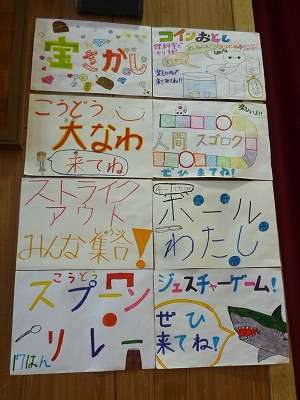 宝さがし
コインおとし
楽しいよ!!
来てね!!
こうどう
大なわ
来てね
人間スゴロク
ぜひきてね!
ストライク
アウト
みんな集合!
ボール
わたし
こうどう
スプーン
リレー
17はん
ジェスチャーゲーム!
ぜひ
来てね!